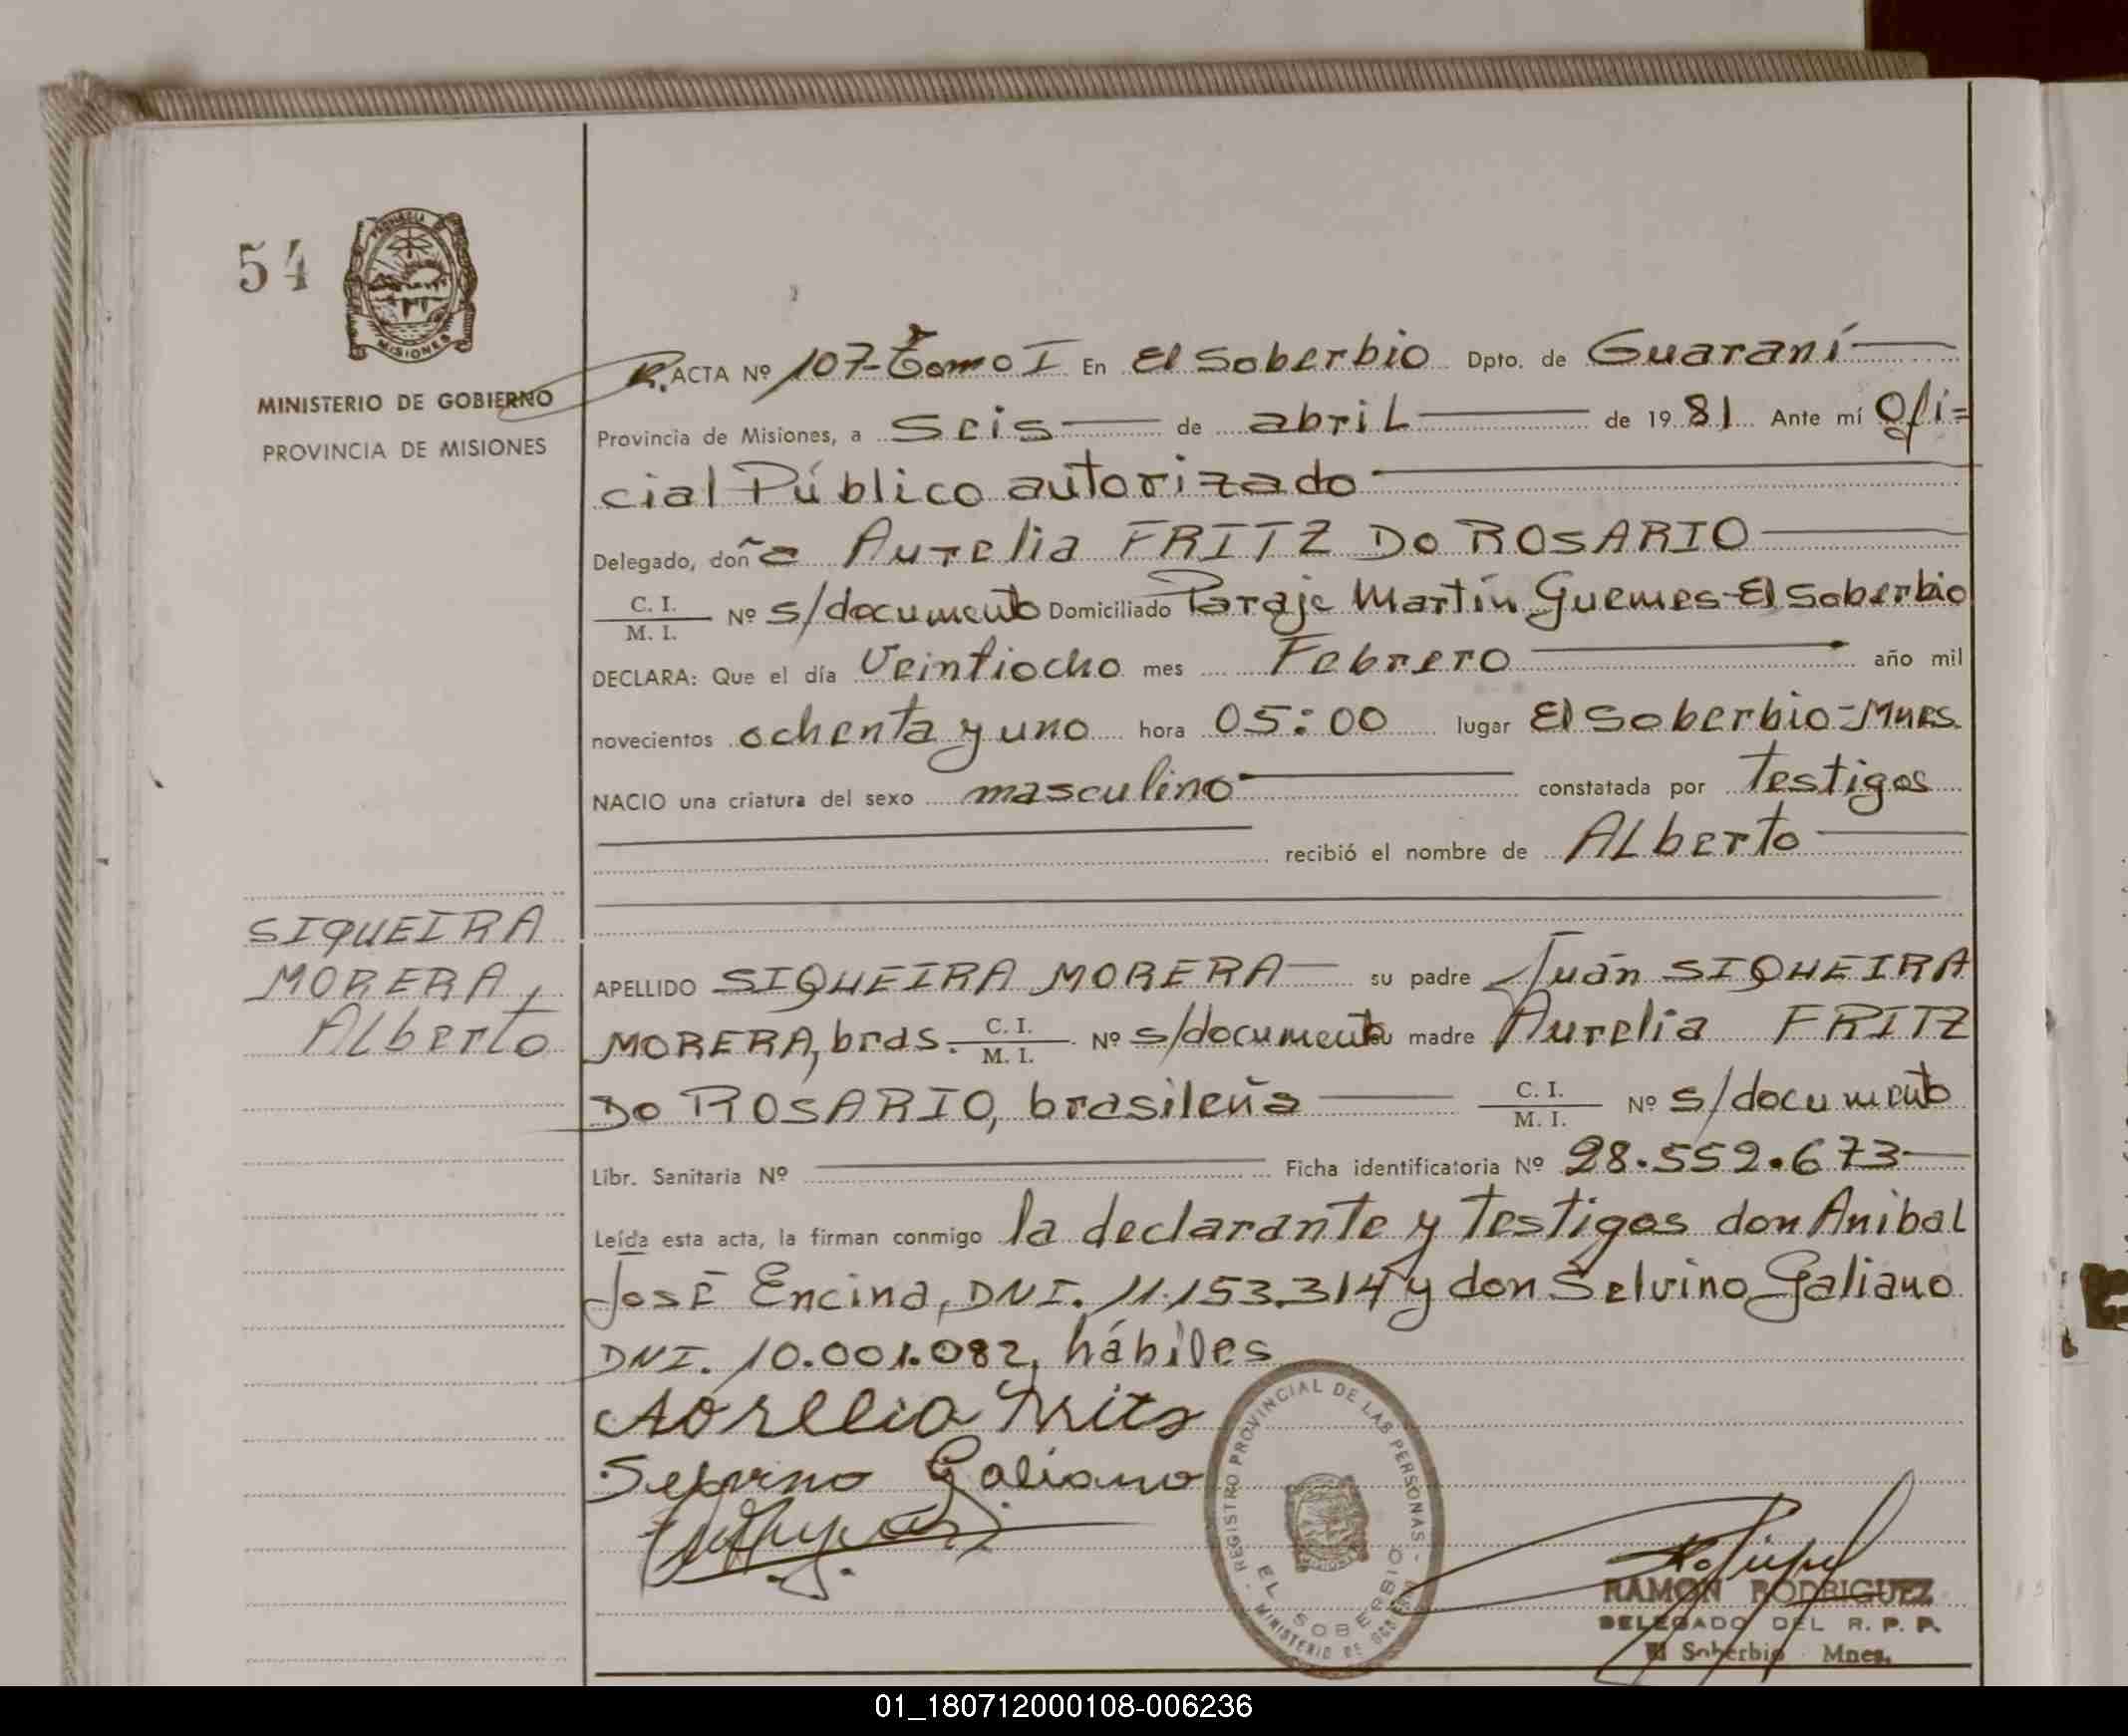 54
PROVINCIA
MISIONES
MINISTERIO DE GOBIERNO
PROVINCIA DE MISIONES
R. ACTA Nº 107-Tomo I En El Soberbio Dpto. de Guaraní
Provincia de Misiones, a Seis de abril de 1981 Ante mí Ofi=
cial Público autorizado
Delegado, doña Aurelia FRITZ DO ROSARIO
C. I.
M. I. Nº s/documento Domiciliado Paraje Martín Guemes-El Soberbio
DECLARA: Que el día Veintiocho mes Febrero año mil
novecientos ochenta y uno hora 05:00 lugar El Soberbio-Mnes.
NACIO una criatura del sexo masculino constatada por Testigos
recibió el nombre de Alberto
SIQUEIRA
MORERA,
Alberto
APELLIDO SIQUEIRA MORERA su padre Juán SIQUEIRA
MORERA, bras. C. I. M. I. Nº s/documento su madre Aurelia FRITZ
DO ROSARIO, brasileña C. I. M. I. Nº s/documento
Libr. Sanitaria Nº Ficha identificatoria Nº 28.552.673
Leída esta acta, la firman conmigo la declarante y testigos don Anibal
José Encina, DNI. 11.153.314 y don Selvino Galiano
DNI. 10.001.082, hábiles
Aorelia Frits
Selvino Galiano
REGISTRO PROVINCIAL DE LAS PERSONAS
EL SOBERBIO
MINISTERIO DE GOBIERNO
RAMON RODRIGUEZ
DELEGADO DEL R. P. P.
El Soberbio Mnes.
01_180712000108-006236